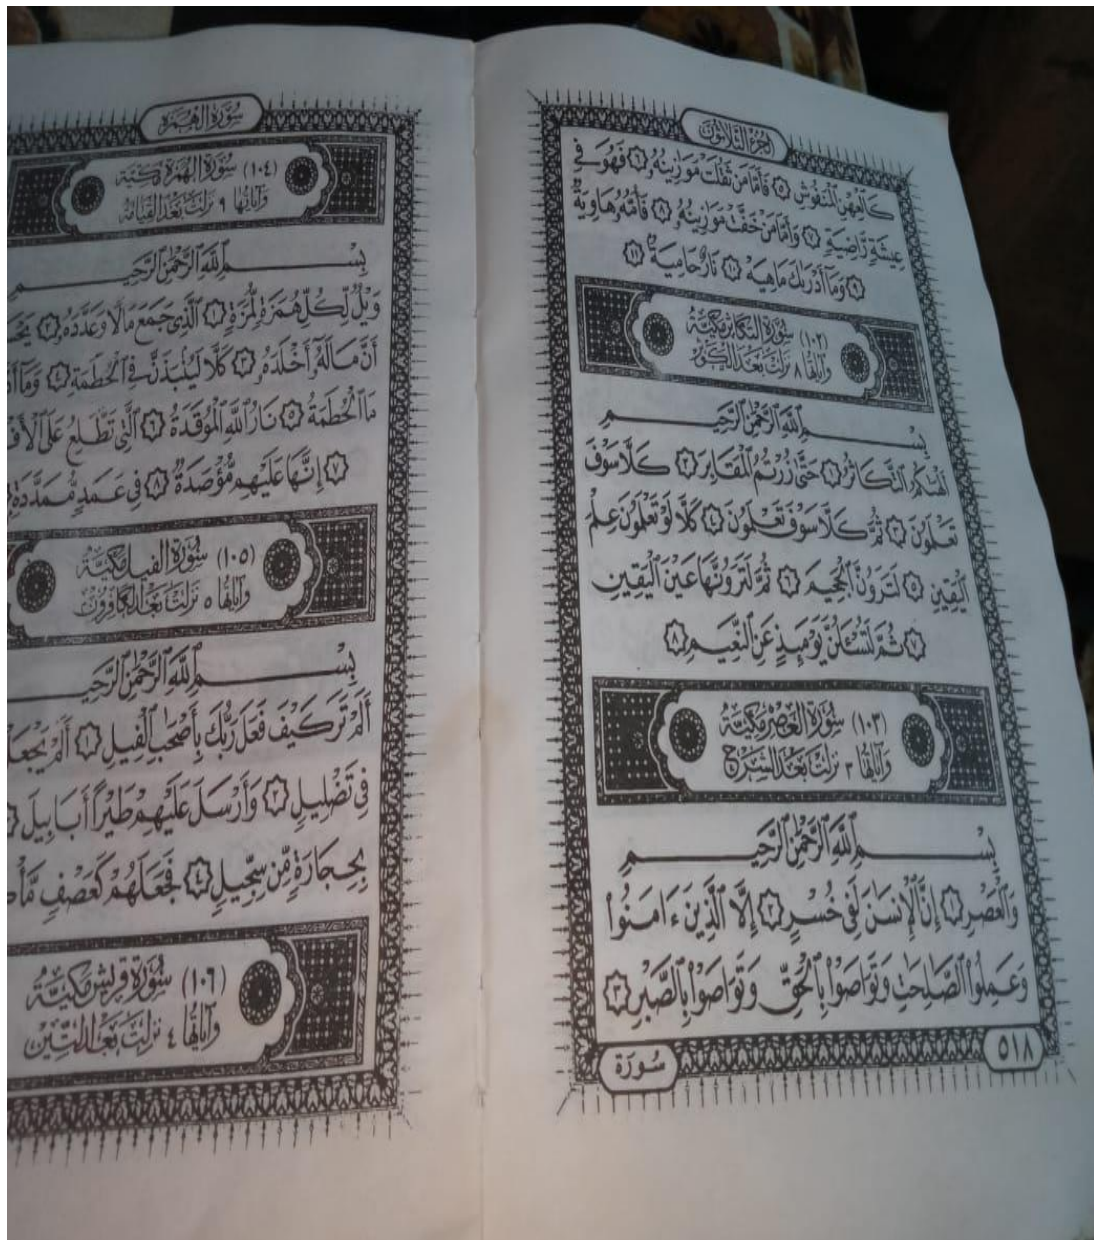 الجزء الثلاثون
كَالْعِهْنِ الْمَنفُوشِ ٥ فَأَمَّا مَن ثَقُلَتْ مَوَٰزِينُهُۥ ٦ فَهُوَ فِي
عِيشَةٍ رَّاضِيَةٍ ٧ وَأَمَّا مَنْ خَفَّتْ مَوَٰزِينُهُۥ ٨ فَأُمُّهُۥ هَاوِيَةٌ
٩ وَمَا أَدْرَىٰكَ مَا هِيَهْ ١٠ نَارٌ حَامِيَةٌ ١١
(١٠٢) سورة التكاثر مكية
وآياتها ٨ نزلت بعد الكوثر
بِسْمِ ٱللَّهِ ٱلرَّحْمَٰنِ ٱلرَّحِيمِ
أَلْهَىٰكُمُ ٱلتَّكَاثُرُ ١ حَتَّىٰ زُرْتُمُ ٱلْمَقَابِرَ ٢ كَلَّا سَوْفَ
تَعْلَمُونَ ٣ ثُمَّ كَلَّا سَوْفَ تَعْلَمُونَ ٤ كَلَّا لَوْ تَعْلَمُونَ عِلْمَ
ٱلْيَقِينِ ٥ لَتَرَوُنَّ ٱلْجَحِيمَ ٦ ثُمَّ لَتَرَوُنَّهَا عَيْنَ ٱلْيَقِينِ
٧ ثُمَّ لَتُسْـَٔلُنَّ يَوْمَئِذٍ عَنِ ٱلنَّعِيمِ ٨
(١٠٣) سورة العصر مكية
وآياتها ٣ نزلت بعد الشرح
بِسْمِ ٱللَّهِ ٱلرَّحْمَٰنِ ٱلرَّحِيمِ
وَٱلْعَصْرِ ١ إِنَّ ٱلْإِنسَٰنَ لَفِي خُسْرٍ ٢ إِلَّا ٱلَّذِينَ ءَامَنُوا۟
وَعَمِلُوا۟ ٱلصَّٰلِحَٰتِ وَتَوَاصَوْا۟ بِٱلْحَقِّ وَتَوَاصَوْا۟ بِٱلصَّبْرِ ٣
٥١٨ سورة
سورة الهمزة
(١٠٤) سورة الهمزة مكية
وآياتها ٩ نزلت بعد القيامة
بِسْمِ ٱللَّهِ ٱلرَّحْمَٰنِ ٱلرَّحِيمِ
وَيْلٌ لِّكُلِّ هُمَزَةٍ لُّمَزَةٍ ١ ٱلَّذِي جَمَعَ مَالًا وَعَدَّدَهُۥ ٢
أَنَّ مَالَهُۥ أَخْلَدَهُۥ ٣ كَلَّا لَيُنۢبَذَنَّ فِي ٱلْحُطَمَةِ ٤ وَمَا
مَا ٱلْحُطَمَةُ ٥ نَارُ ٱللَّهِ ٱلْمُوقَدَةُ ٦ ٱلَّتِي تَطَّلِعُ عَلَى
٧ إِنَّهَا عَلَيْهِم مُّؤْصَدَةٌ ٨ فِي عَمَدٍ مُّمَدَّدَةٍ
(١٠٥) سورة الفيل مكية
وآياتها ٥ نزلت بعد الكافرون
بِسْمِ ٱللَّهِ ٱلرَّحْمَٰنِ ٱلرَّحِيمِ
أَلَمْ تَرَ كَيْفَ فَعَلَ رَبُّكَ بِأَصْحَٰبِ ٱلْفِيلِ ١ أَلَمْ
فِي تَضْلِيلٍ ٢ وَأَرْسَلَ عَلَيْهِمْ طَيْرًا أَبَابِيلَ
بِحِجَارَةٍ مِّن سِجِّيلٍ ٤ فَجَعَلَهُمْ كَعَصْفٍ
(١٠٦) سورة قريش مكية
وآياتها ٤ نزلت بعد التين